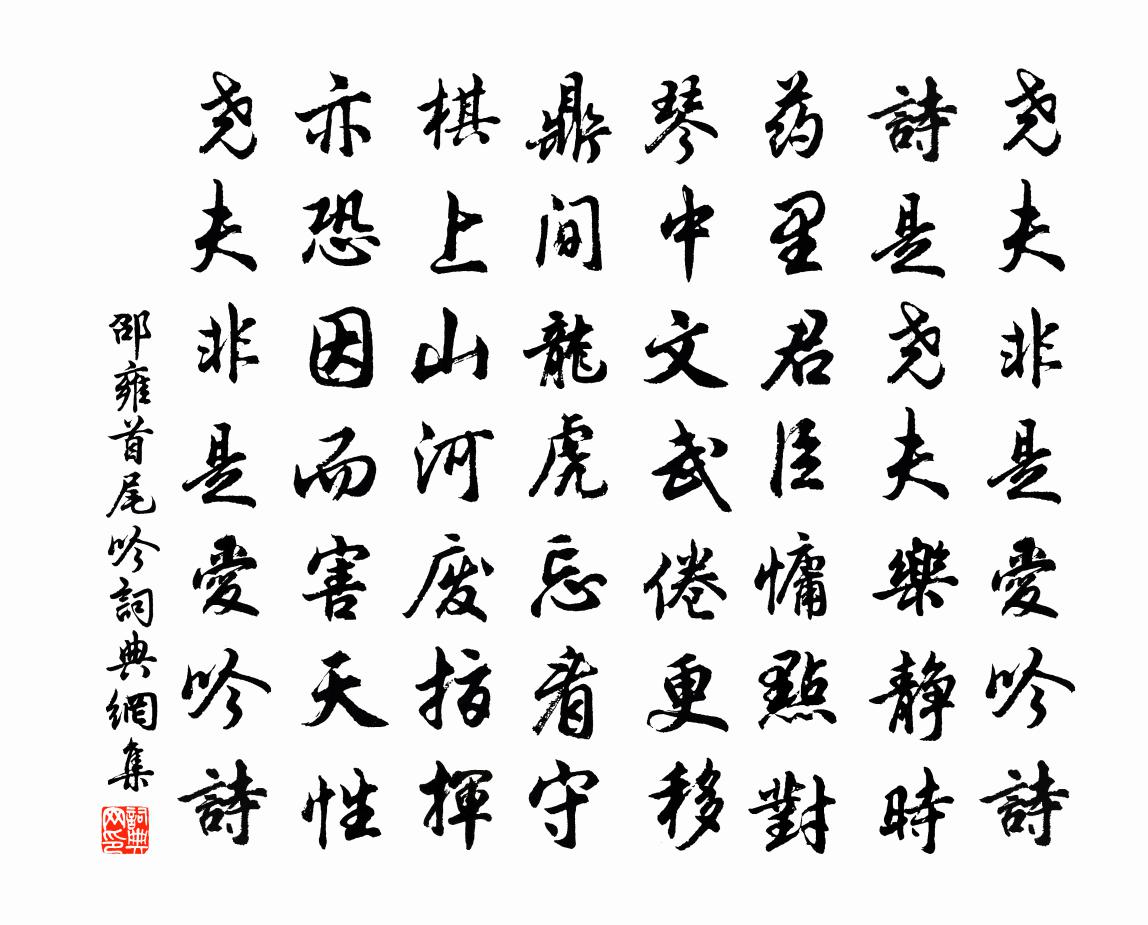 尧夫非是愛吟詩
詩是尧夫樂静時
药里君臣慵點對
琴中文武倦更移
鼎间龍虎忘看守
棋上山河废指揮
亦恐因而害天性
尧夫非是愛吟詩
邵雍首尾吟詞典網集
詞典网印